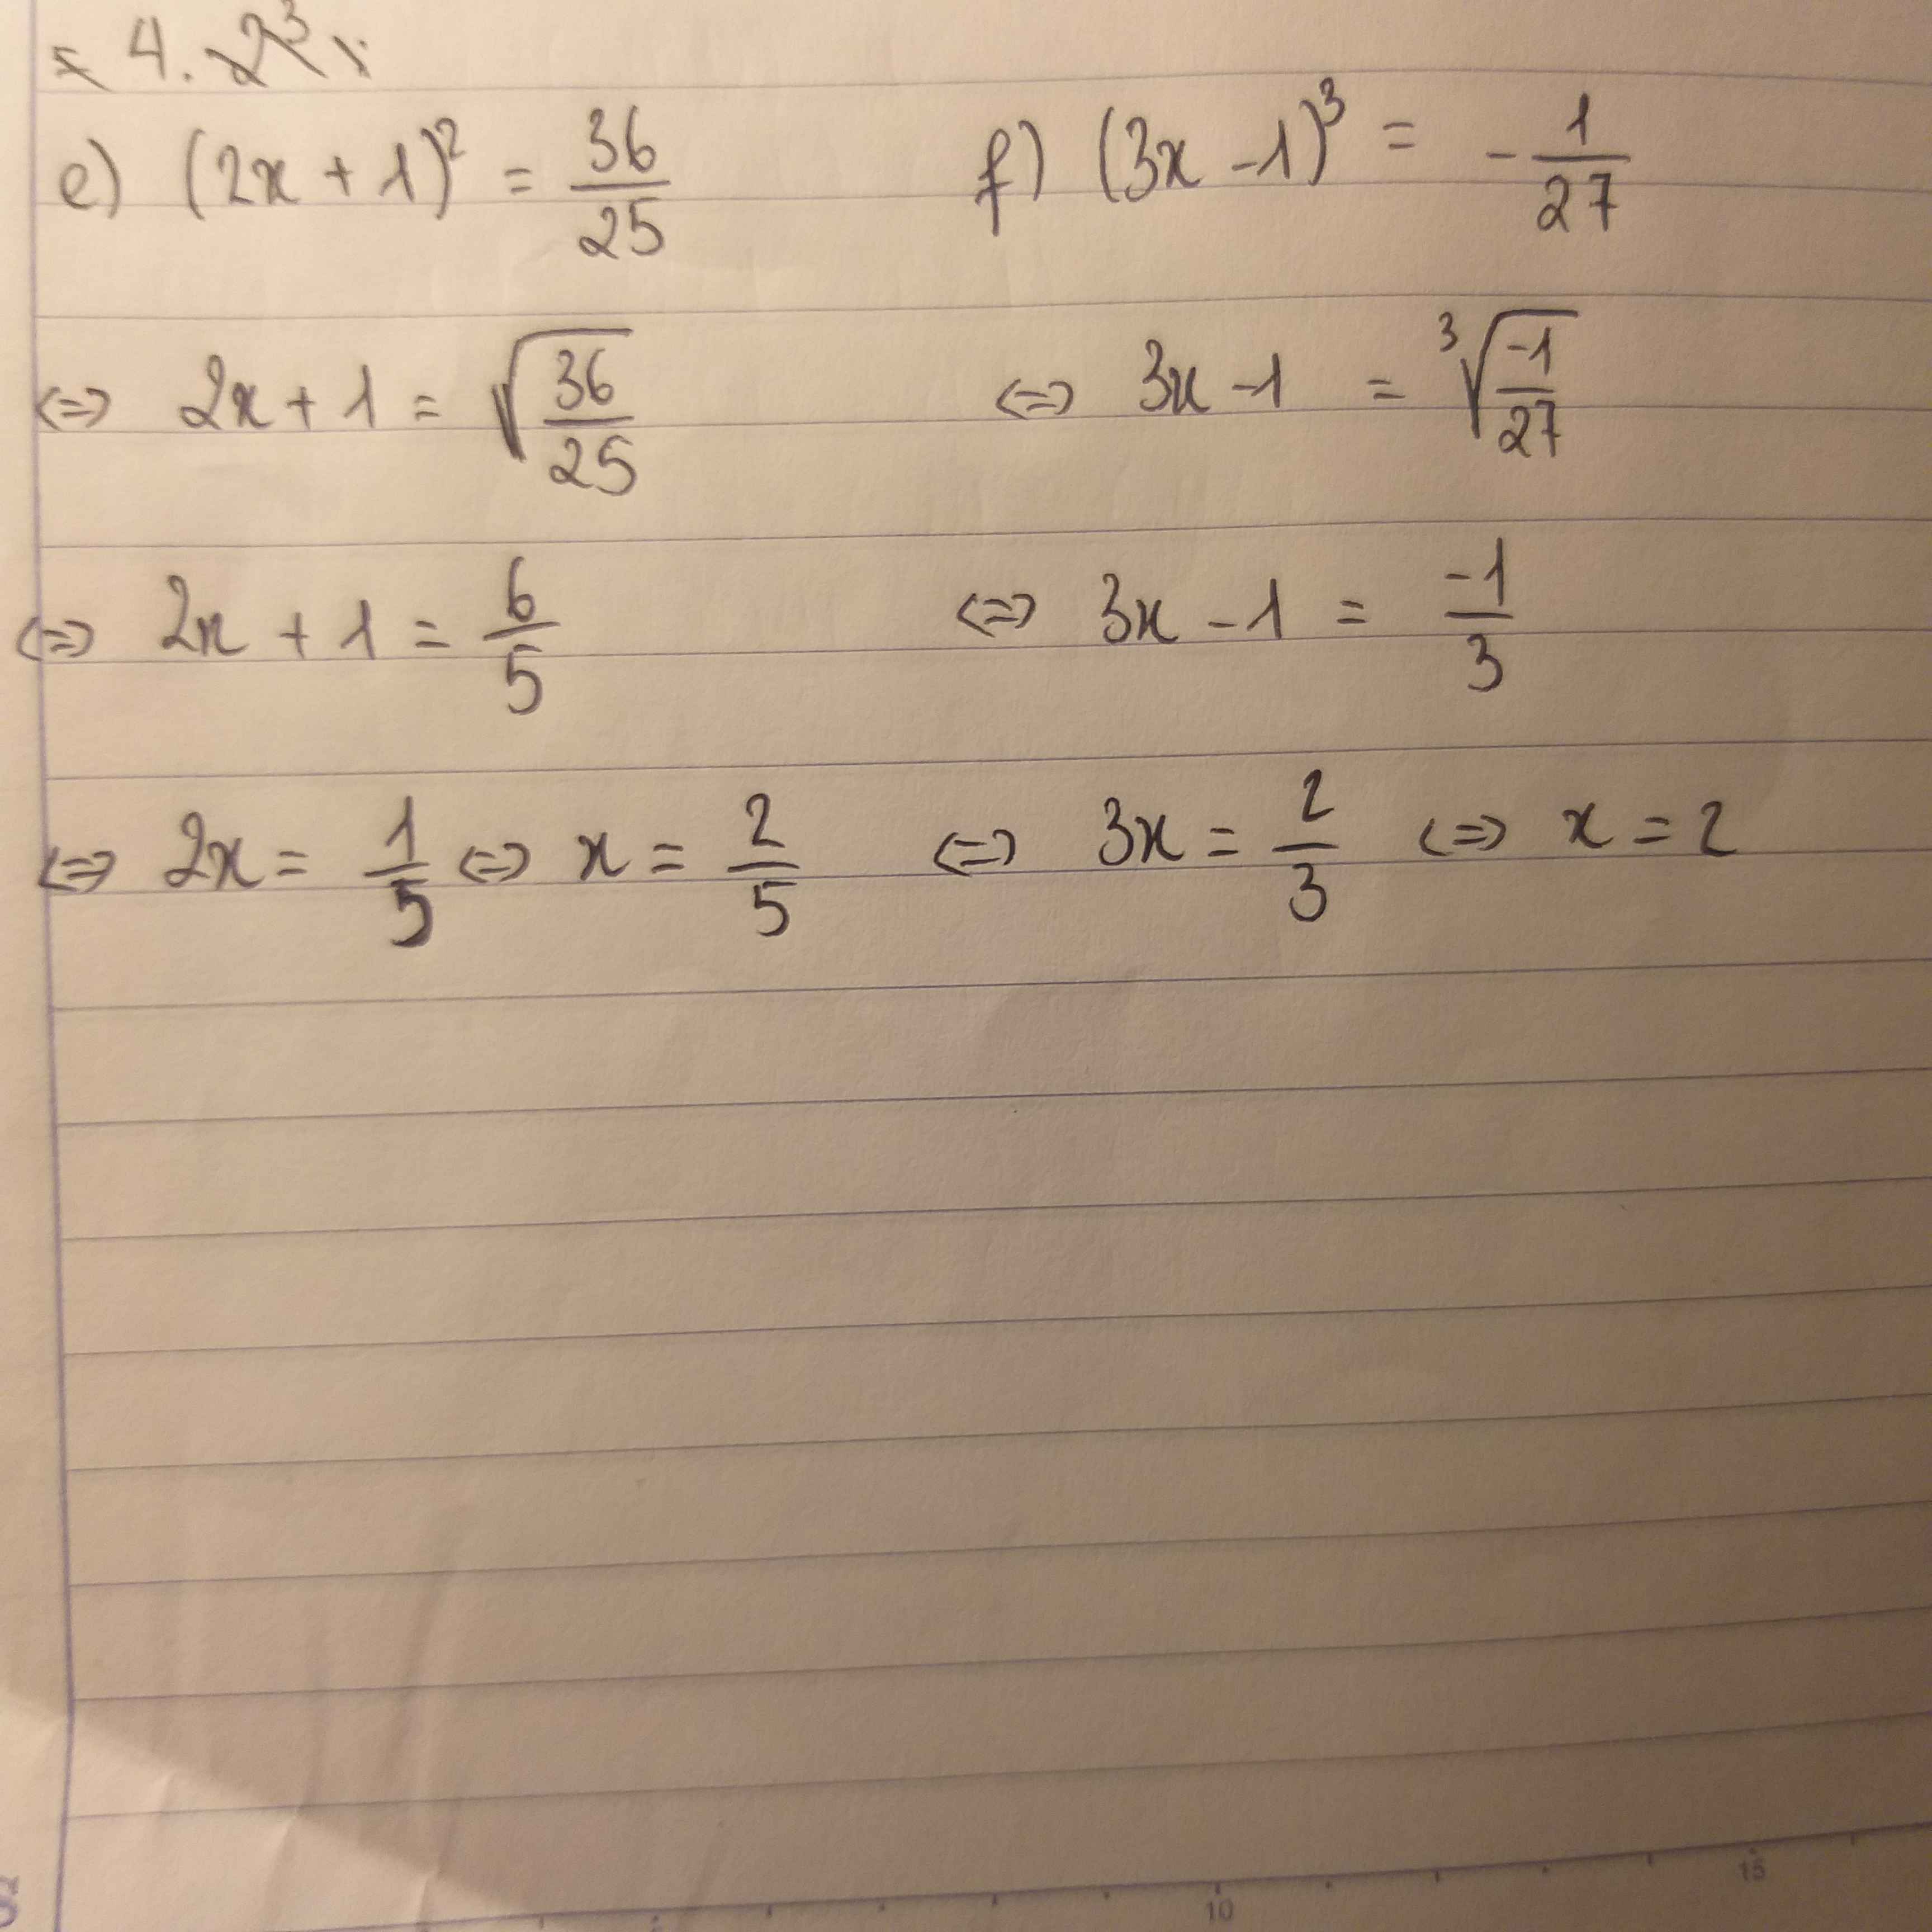 = 4. 2³
e) (2x + 1)² = 36/25
⇔ 2x + 1 = √(36/25)
⇔ 2x + 1 = 6/5
⇔ 2x = 1/5 ⇔ x = 2/5
f) (3x - 1)³ = - 1/27
⇔ 3x - 1 = ³√(-1/27)
⇔ 3x - 1 = -1/3
⇔ 3x = 2/3 ⇔ x = 2
10
15